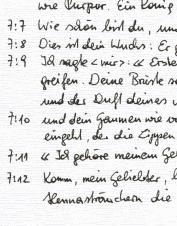 wie Purpur. Ein König
7:7 Wie schön bist du, und
7:8 Dies ist dein Wuchs: Er g
7:9 Ich sagte <mir>: « Erste
greifen. Deine Brüste s
und der Duft deines
7:10 und dein Gaumen wie
eingeht, der die Lippen
7:11 « Ich gehöre meinem Ge
7:12 Komm, mein Geliebter, l
Hennasträuchern die